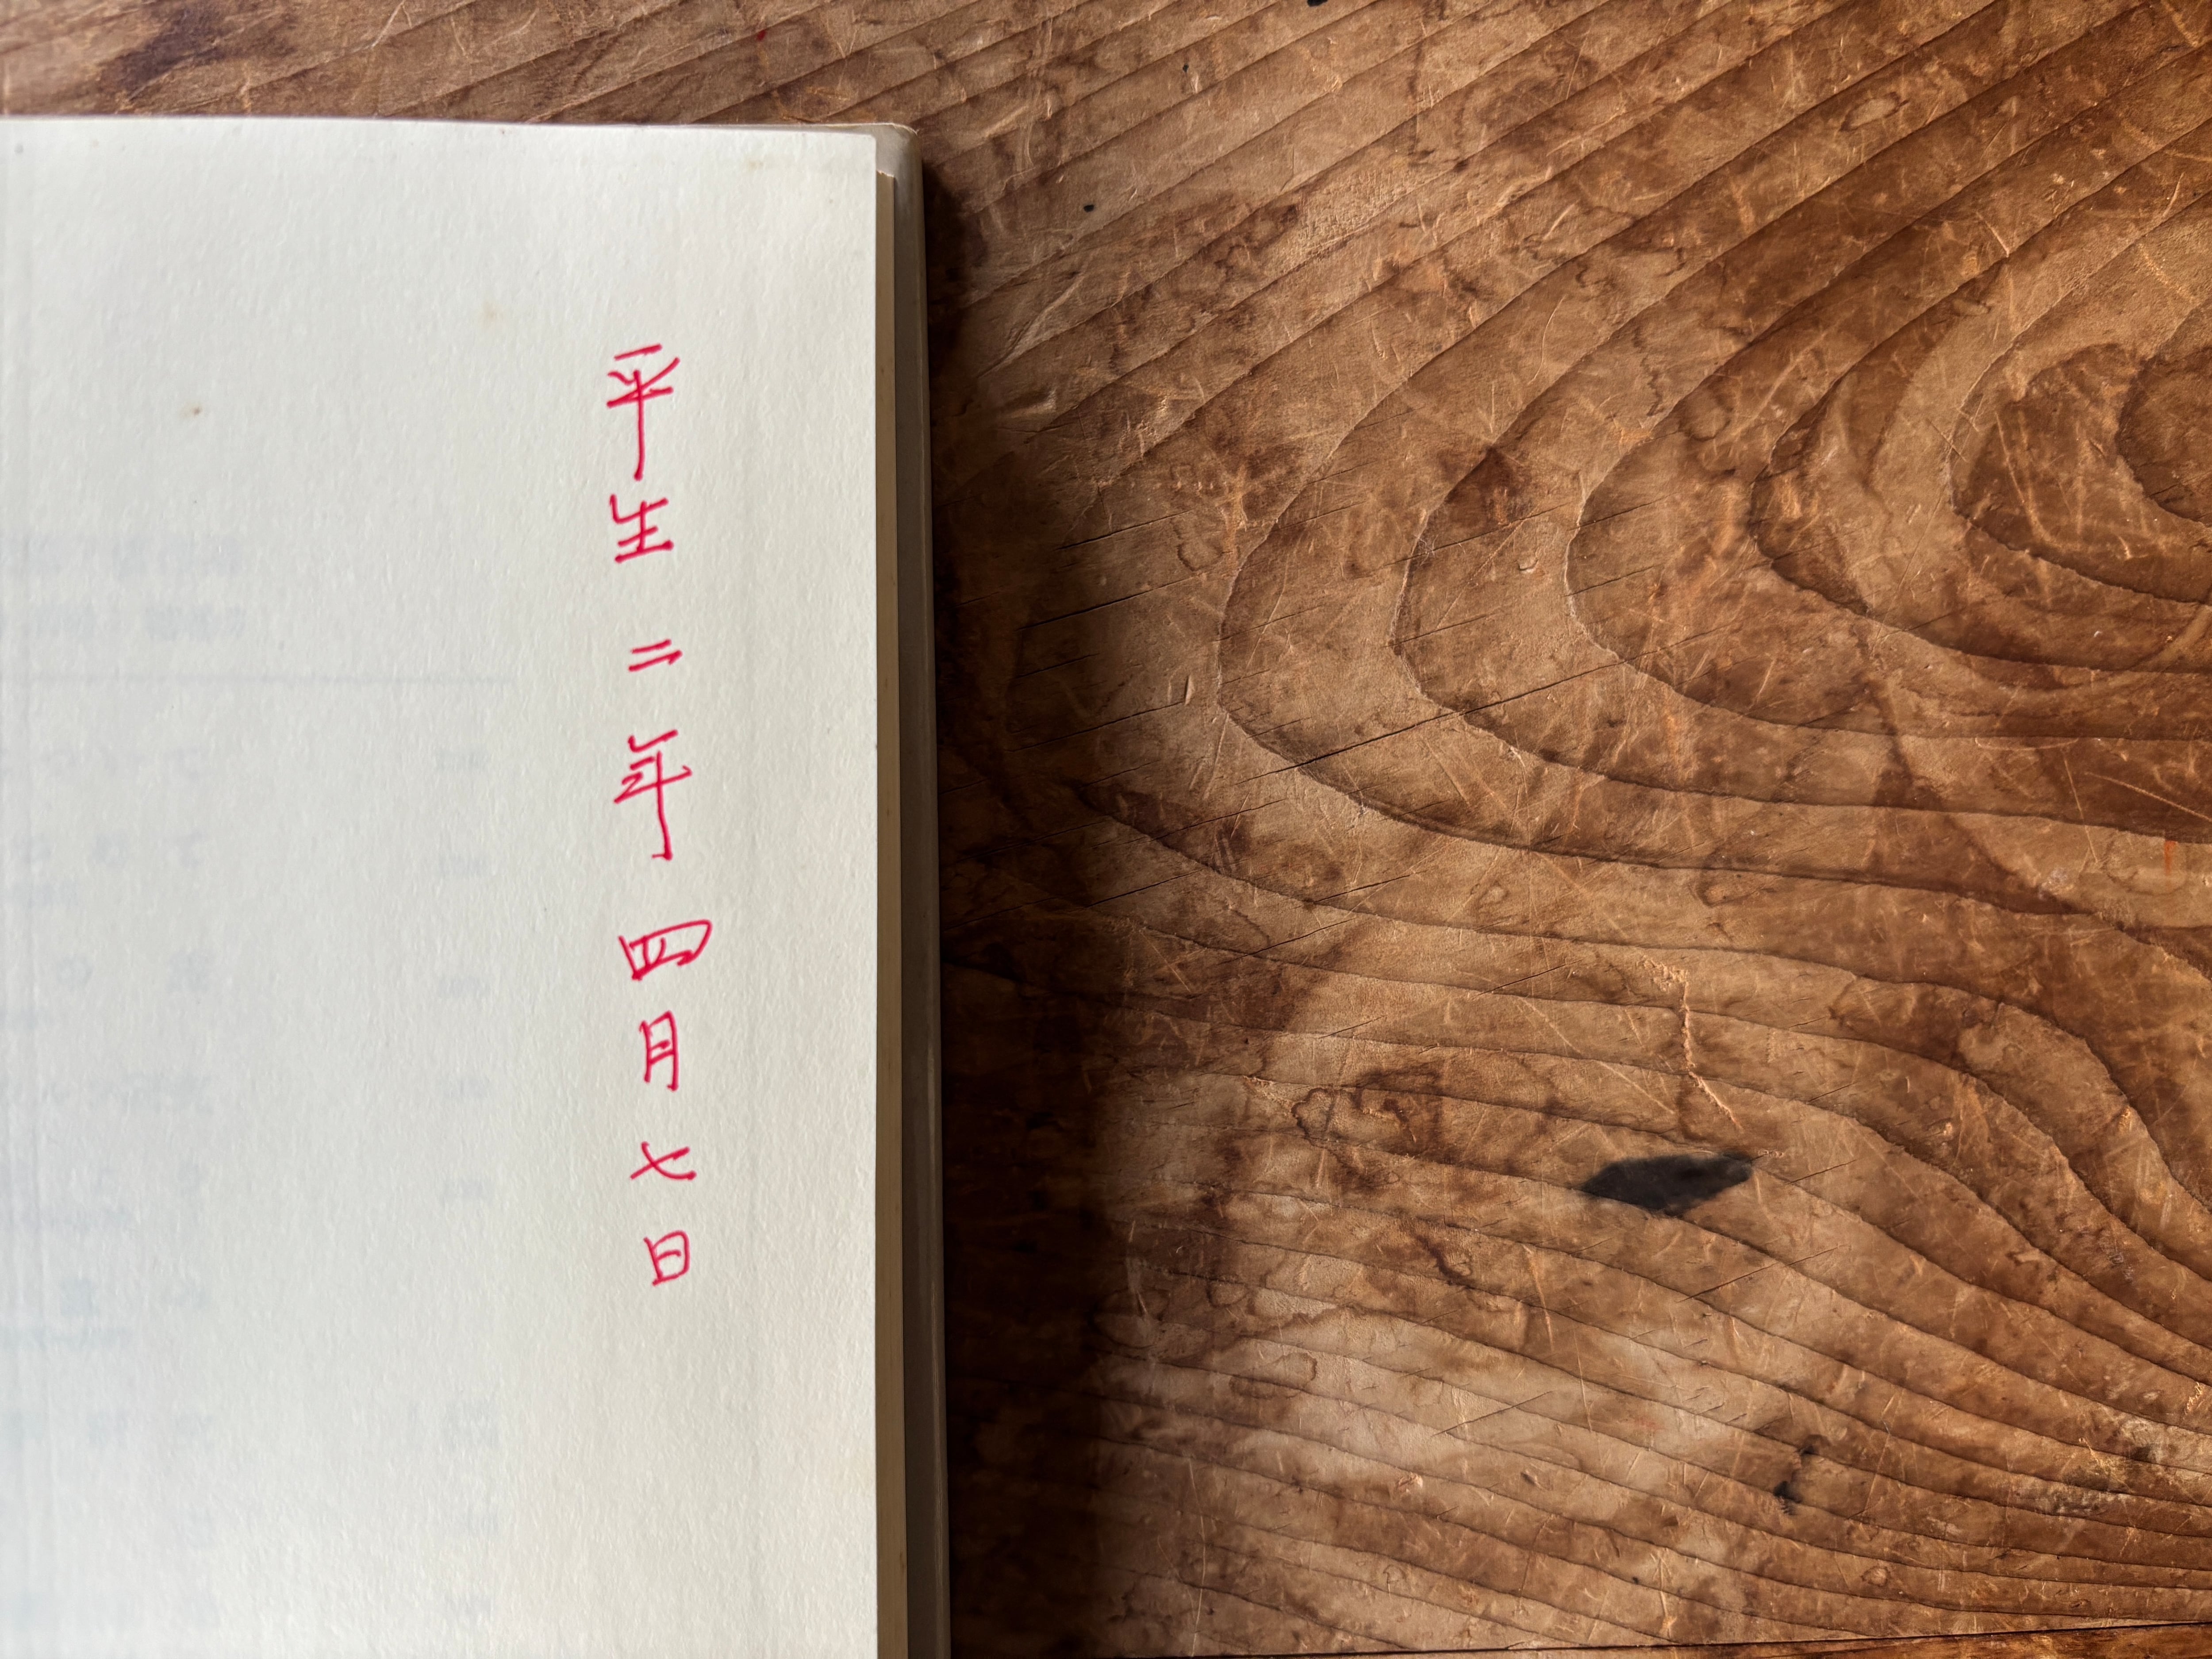 平生二年四月七日